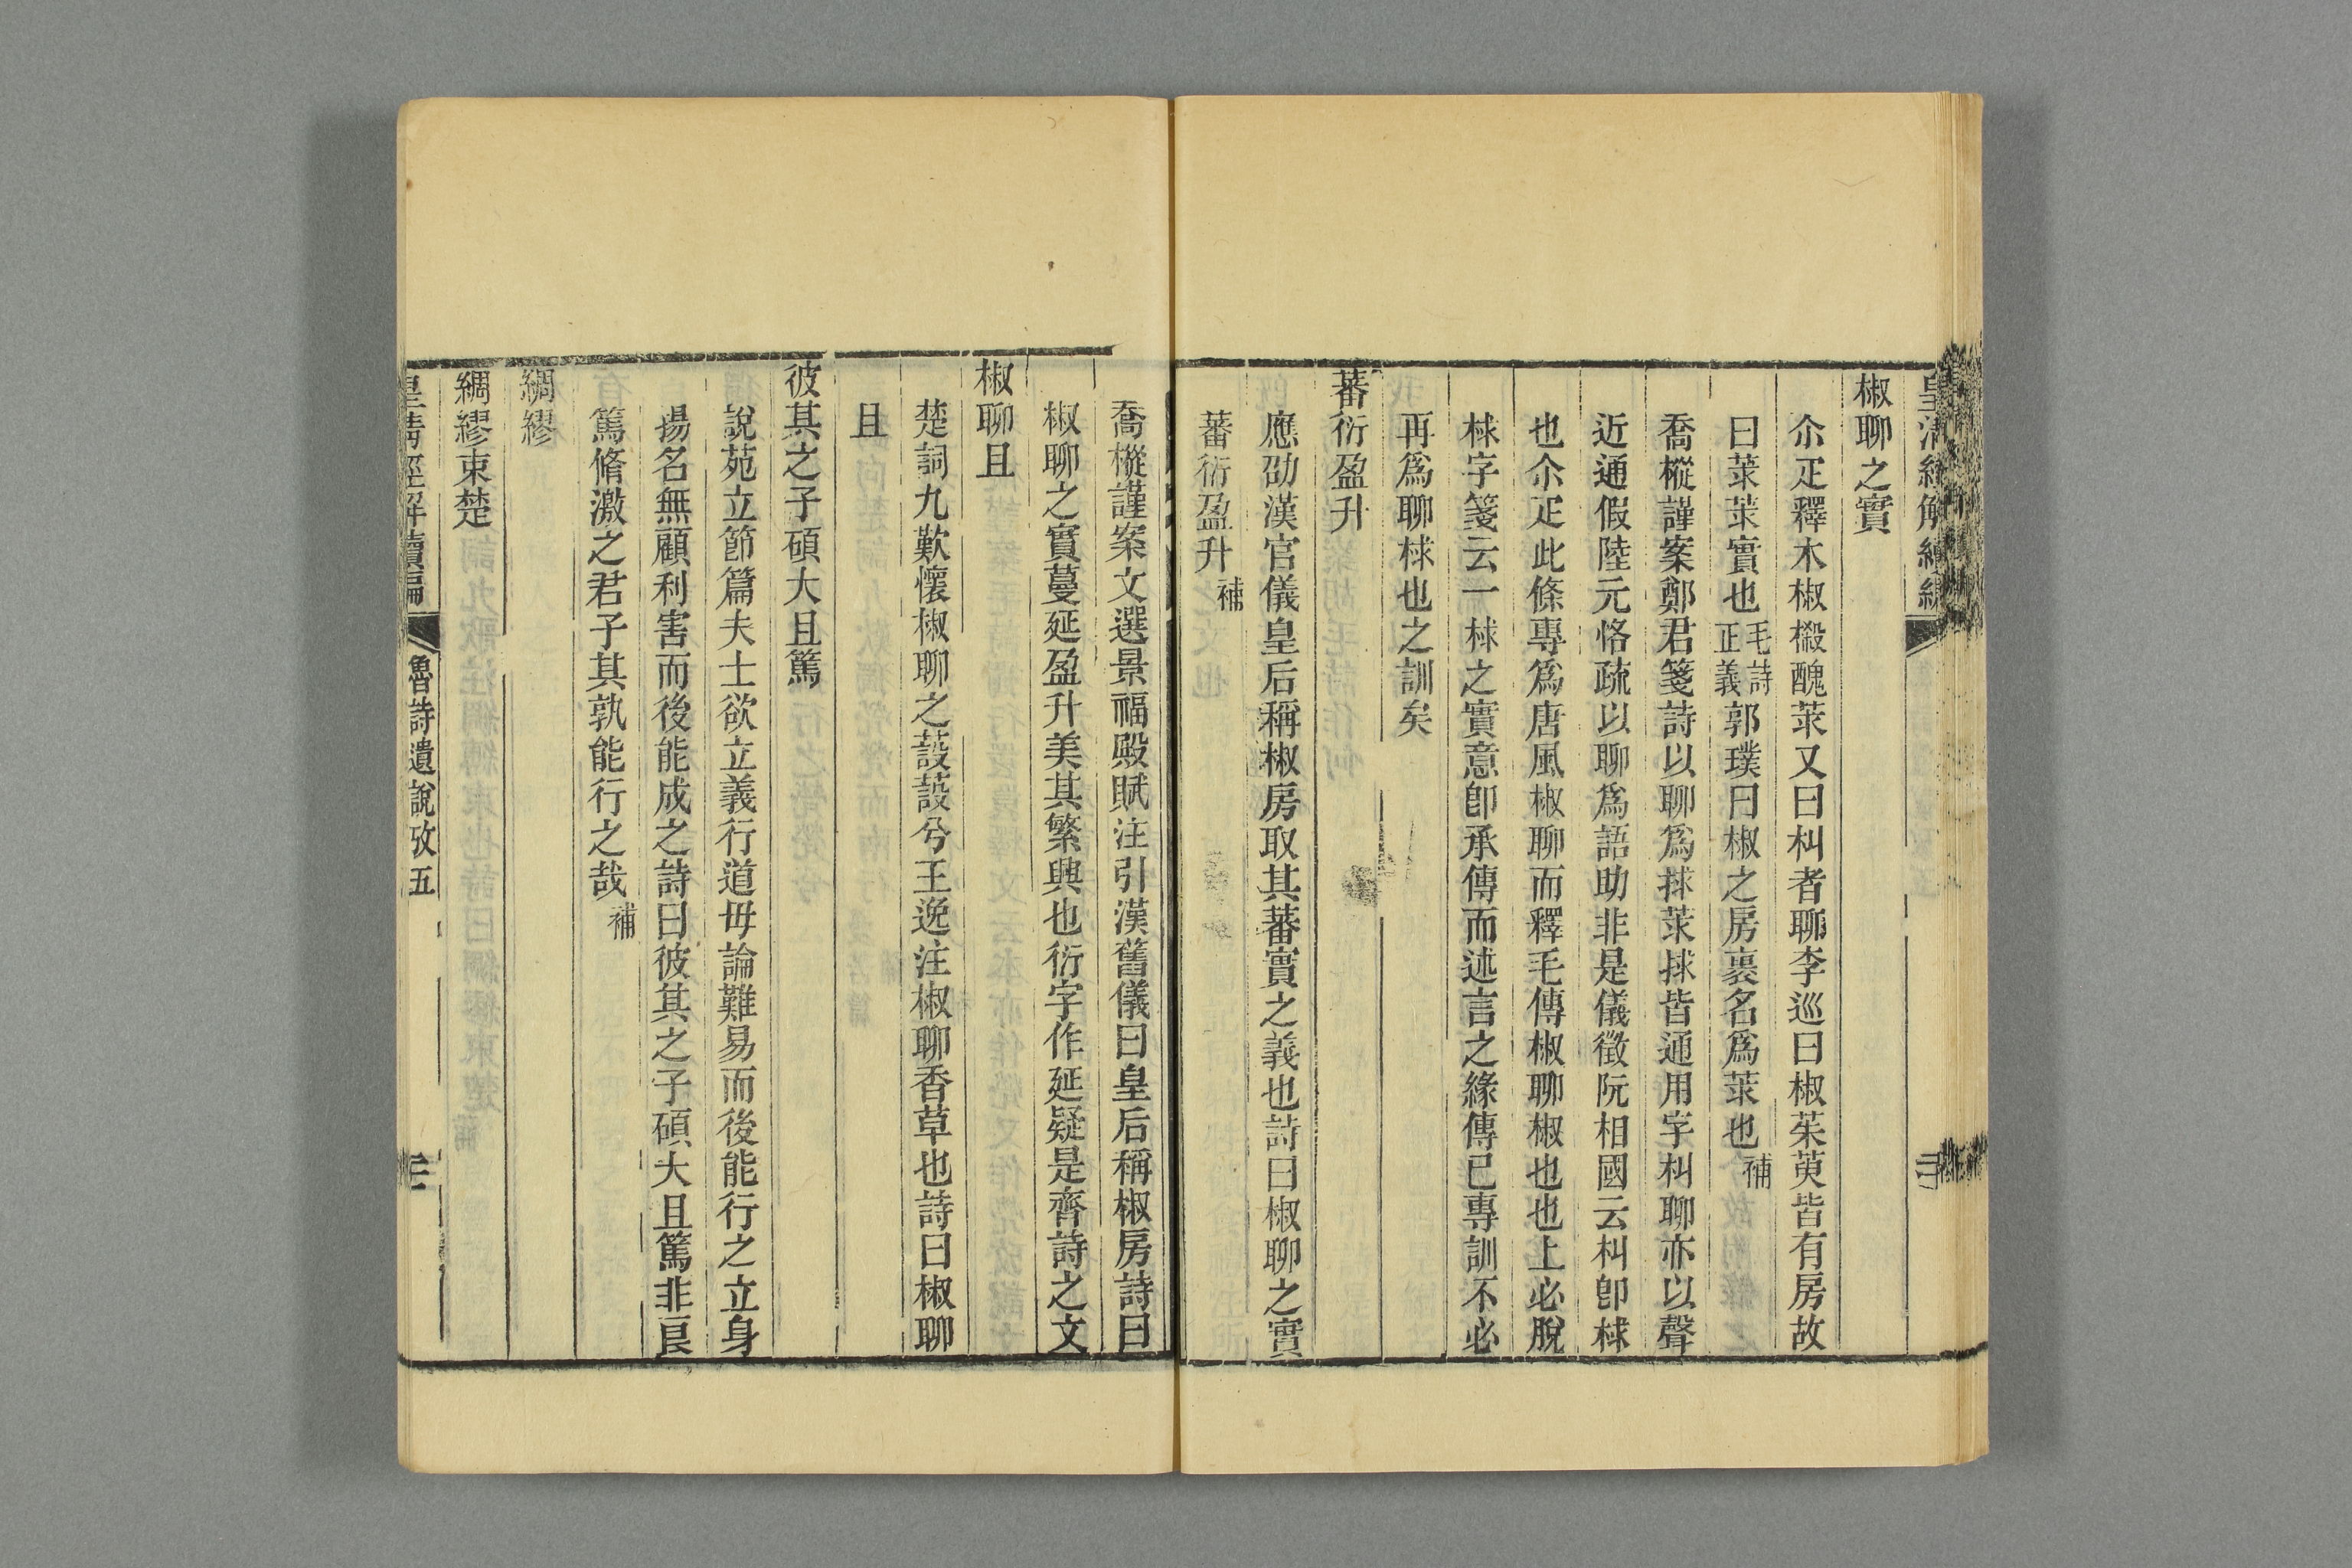 皇清經解續編
椒聊之實
尒疋釋木椒樧醜莍又曰朻者聊李巡曰椒茱萸皆有房故
曰莍莍實也毛詩正義郭璞曰椒之房裏名爲莍也補
喬樅謹案鄭君箋詩以聊爲捄莍捄皆通用字朻聊亦以聲
近通假陸元恪疏以聊爲語助非是儀徵阮相國云朻卽梂
也尒疋此條專爲唐風椒聊而釋毛傳椒聊椒也也上必脫
梂字箋云一梂之實意卽承傳而述言之緣傳已專訓不必
再爲聊梂也之訓矣
蕃衍盈升
應劭漢官儀皇后稱椒房取其蕃實之義也詩曰椒聊之實
蕃衍盈升補
喬樅謹案文選景福殿賦注引漢舊儀曰皇后稱椒房詩曰
椒聊之實蔓延盈升美其繁興也衍字作延疑是齊詩之文
椒聊且
楚詞九歎懷椒聊之蔎蔎兮王逸注椒聊香草也詩曰椒聊
且
彼其之子碩大且篤
說苑立節篇夫士欲立義行道毋論難易而後能行之立身
揚名無顧利害而後能成之詩曰彼其之子碩大且篤非良
篤脩激之君子其孰能行之哉補
綢繆
綢繆束楚
皇清經解續編 魯詩遺說攷五